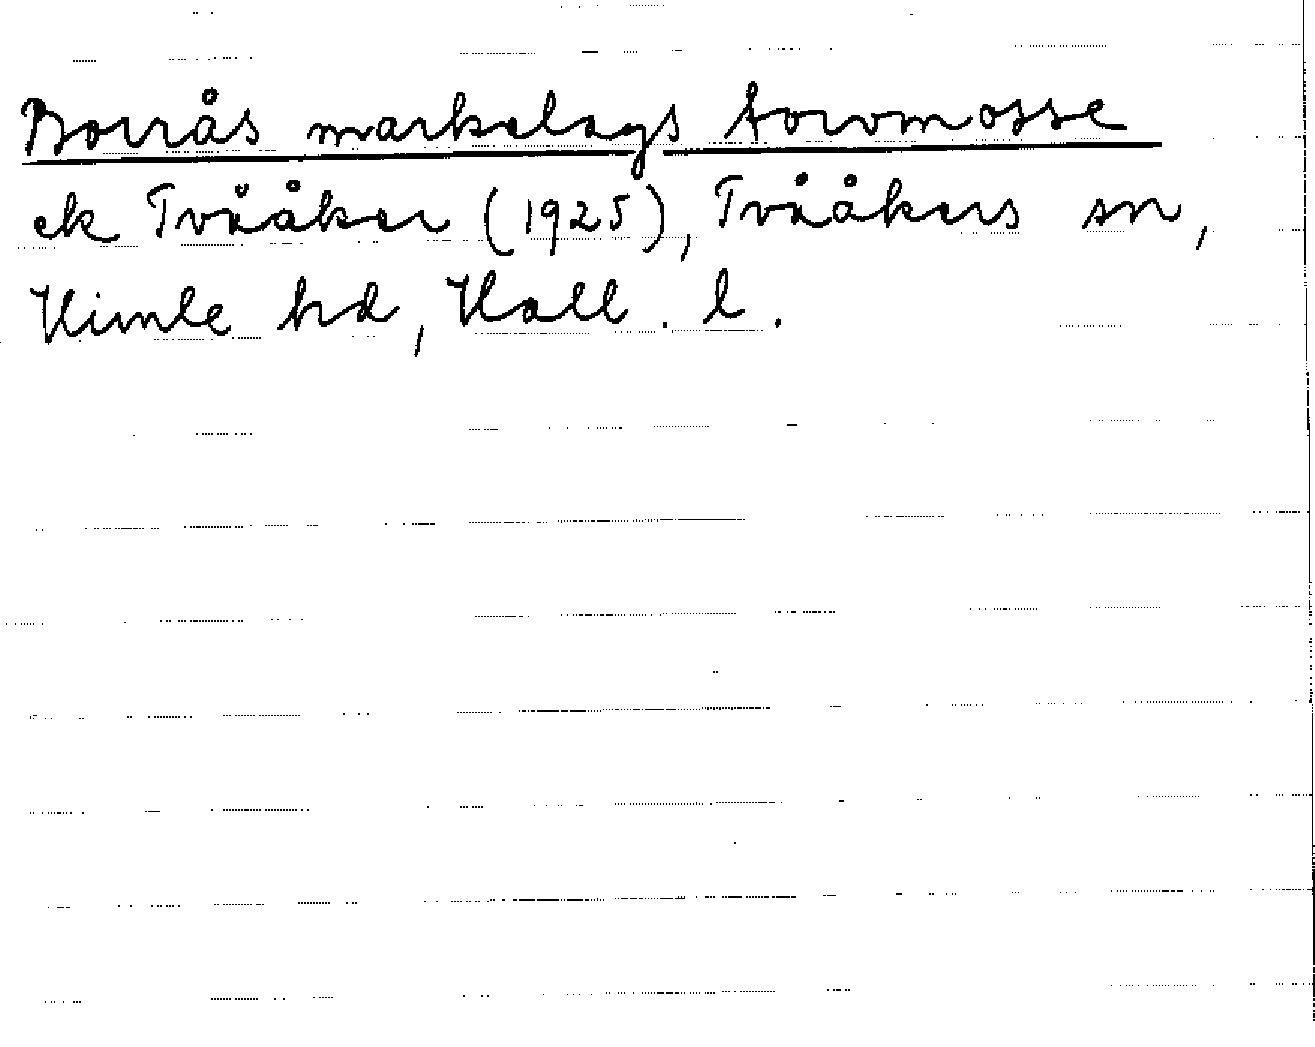 Borrås markalags torvmosse
ek Tvååker (1925), Tvååkers sn,
Himle hd, Hall. l.